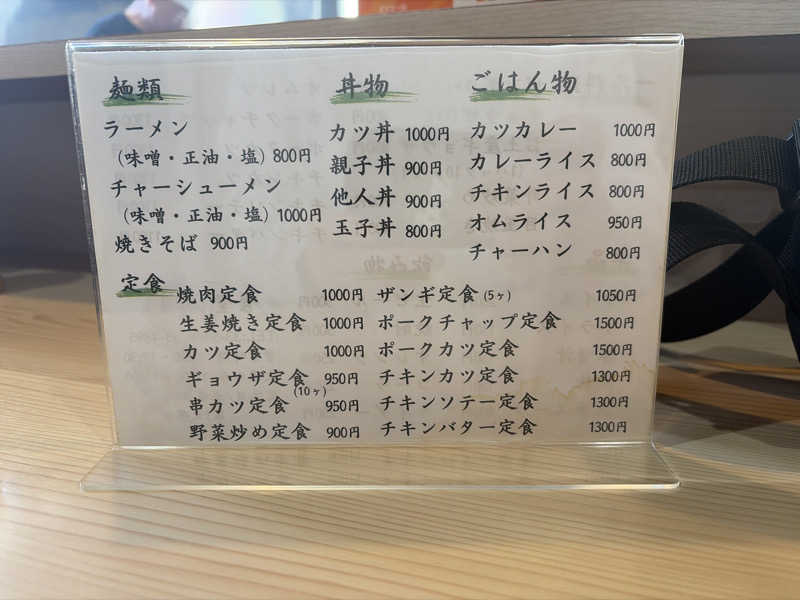 麺類
ラーメン
(味噌・正油・塩) 800円
チャーシューメン
(味噌・正油・塩) 1000円
焼きそば 900円
丼物
カツ丼 1000円
親子丼 900円
他人丼 900円
玉子丼 800円
ごはん物
カツカレー 1000円
カレーライス 800円
チキンライス 800円
オムライス 950円
チャーハン 800円
定食
焼肉定食 1000円
生姜焼き定食 1000円
カツ定食 1000円
ギョウザ定食 950円
(10ヶ)
串カツ定食 950円
野菜炒め定食 900円
ザンギ定食 (5ヶ) 1050円
ポークチャップ定食 1500円
ポークカツ定食 1500円
チキンカツ定食 1300円
チキンソテー定食 1300円
チキンバター定食 1300円